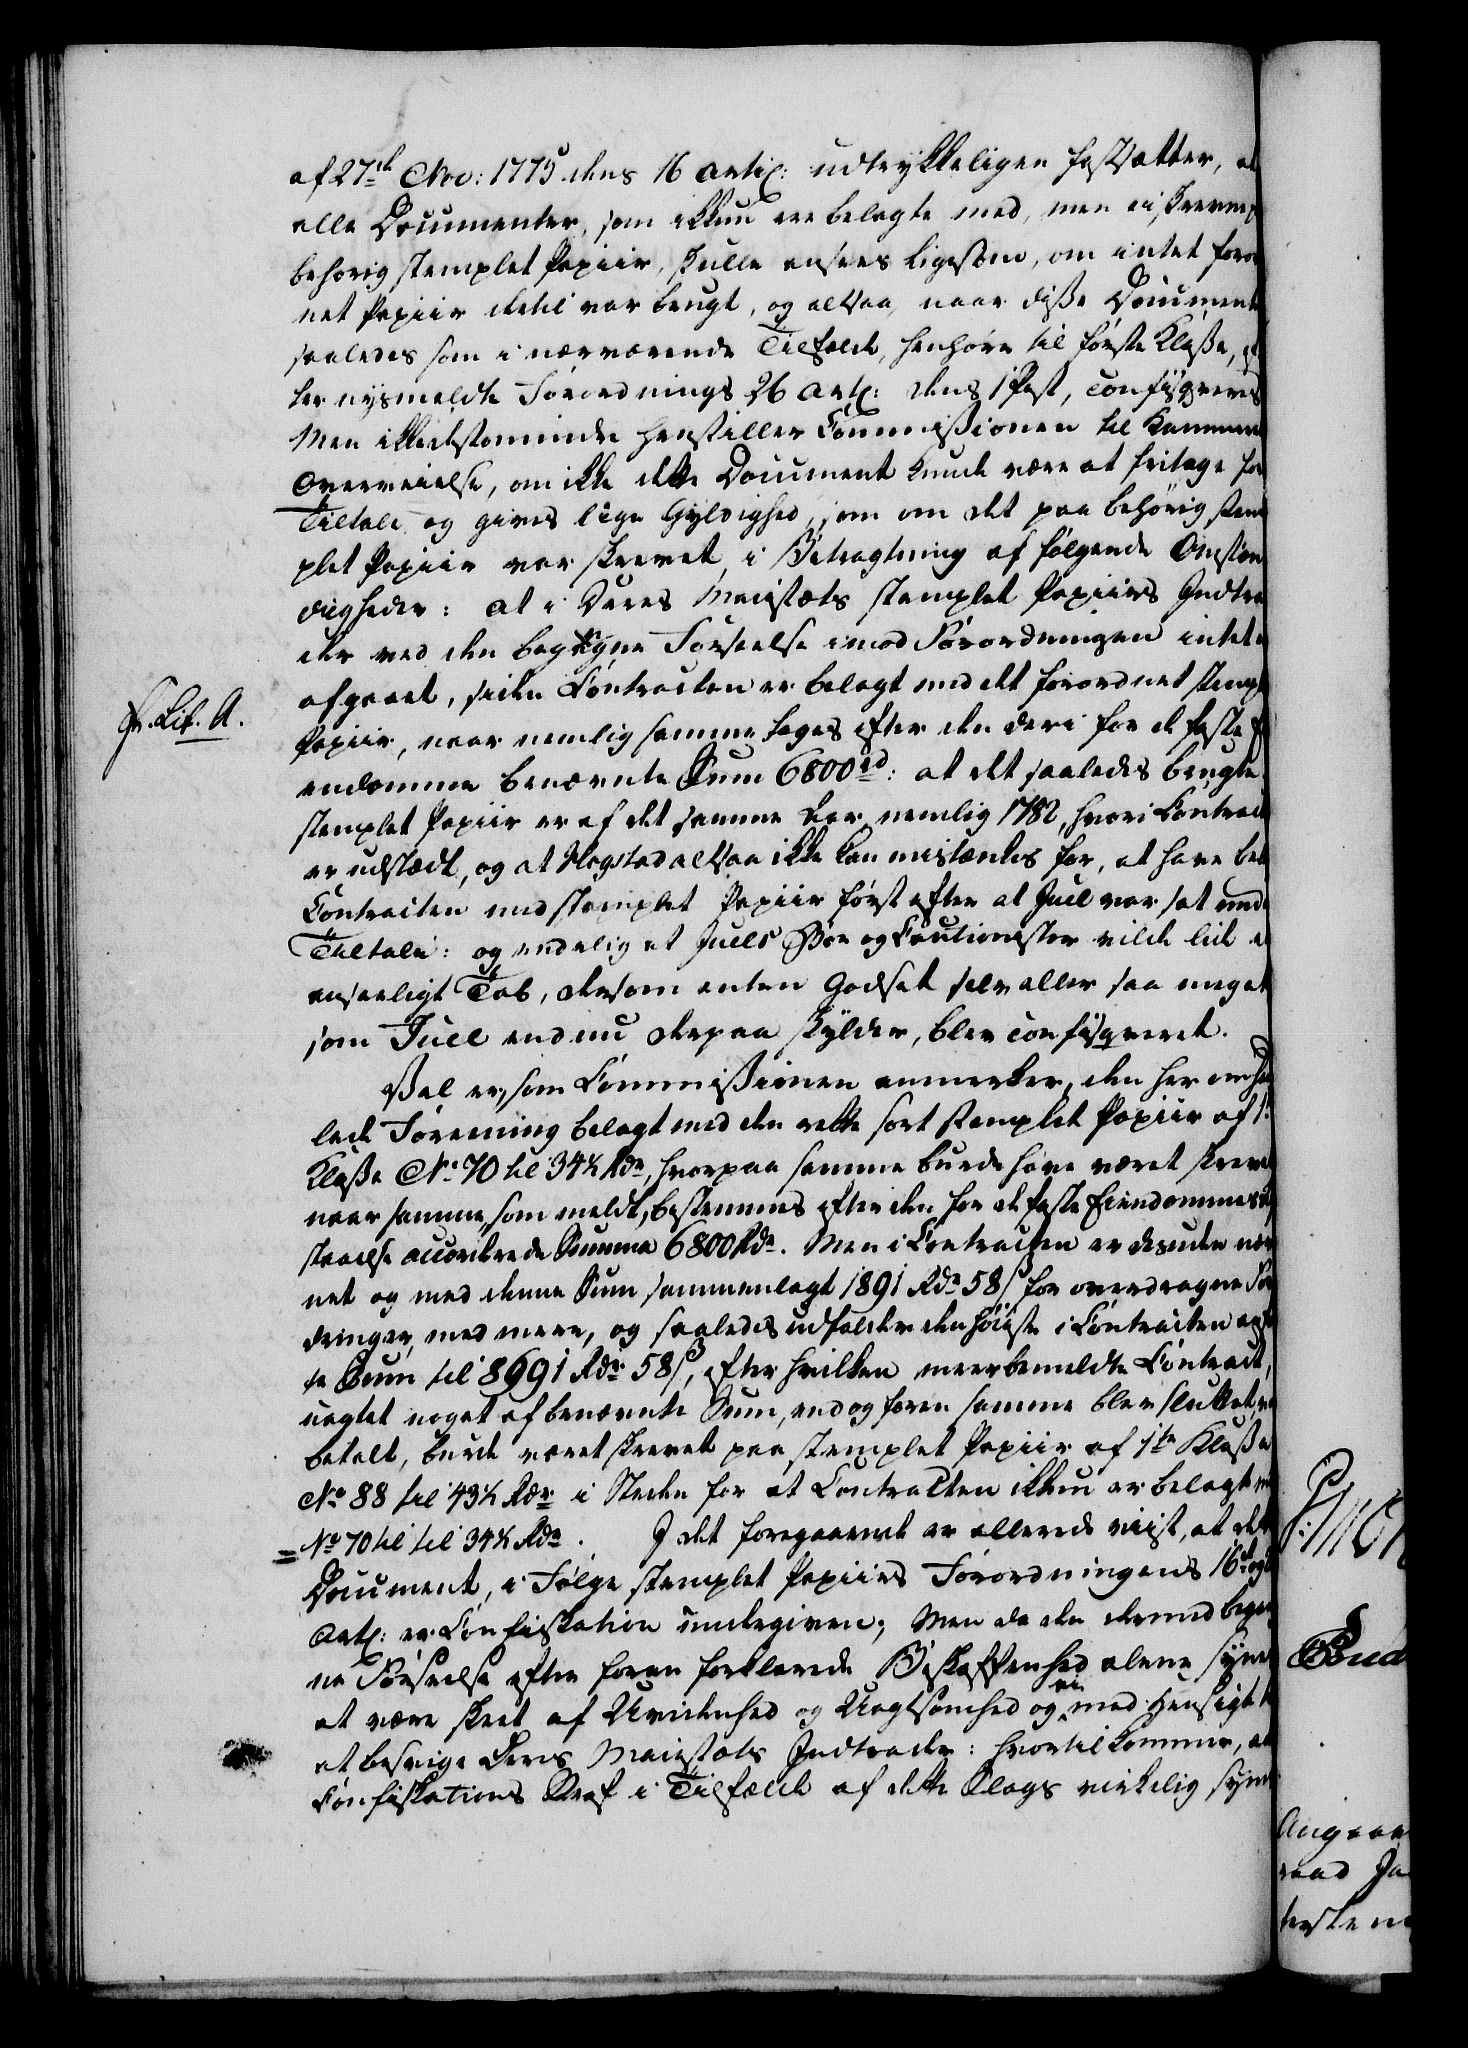 af 27de Nov: 1775 dens 16 Artic: udtrykkeligen fastsætter, at
alle Documenter, som ikkun ere belagte med, men ei skrevne
behørig stemplet Papiir, skulle ansees ligesom, om intet forord
net Papiir dertil var brugt, og altsaa, naar disse Document
saaledes som i nærværende Tilfælde, henhøre til første Klasse, ef
ter nysmeldte Forordnings 26 Art: dens 1 Post, confisqveres
Men ikkedestomindre henstiller Commissionen til Kammere
Overveielse, om ikke dette Document kunde være at fritage for
Tiltale og gives lige Gyldighed, som om det paa behørig stem
plet Papiir var skrevet, i Betragtning af følgende Omstæn
digheder: at i Deres Majestæts stemplet Papiirs Indtræ
der ved den begagne Forseelse imod Forordningen intet
afgaaet, siden Contracten er belagt med det forordnet stempl
Papiir, naar nemlig samme tages efter den deri for de faste E
endomme benævnte Sum 6800 rd: at det saaledes brugte
stemplet Papiir er af det samme Aar nemlig 1782, hvori Contract
er udstædt, og at Kogstad altsaa ikke kan mistænkes for, at have bel
Contracten med stemplet Papiir først efter at Juel var sat und
Tiltale: og endelig at Juels Boe og Cautionister vilde lide e
anseeligt Tab, dersom enten Godset selv eller saa meget
som Juel endnu derpaa skylder, blev confisqveret.
Vel er, som Commissionen anmerker, den her omha
lede Forening belagt med den rette sort stemplet Papiir af 1.
Klasse No 70 til 34½ Rdr, hvorpaa samme burde have været skrev
naar samme, som meldt, bestemmes efter den for de faste Eiendommes
staaelse accorderede Summa 6800 Rdr. Men i Contracten er desuden næv
net og med denne Sum sammenlagt 1891 Rdr 58 ß for overdragne For
dringer, med mere, og saaledes udfalder den høieste i Contracten anfø
te Sum til 8691 Rdr 58 ß, efter hvilken meerbemeldte Contract,
uagtet noget af benævnte Sum, endog foren samme blev sluttet, va
betalt, burde været skrevet paa stemplet Papiir af 1ste Klasse
No 88 til 43½ Rdr i Steden for at Contracten ikkun er belagt m
No 70 til til 34½ Rdr. I det foregaaende er allerede viist, at det
Document, i Følge stemplet Papiirs Forordningens 16de og
Art: er Confiskation undergiven; Men da den dermed begag
ne Forseelse efter foran forklarede Beskaffenhed alene synes
at være skeet af Uvidenhed og Uagtsomhed og ei med Hensigt t
at besvige Deres Majestæts Indtrader: hvortil kommer, at
Confiskations Straf i Tilfælde af dette Slags virkelig syne
fr. Lit. A.
Angaae
raad Ja